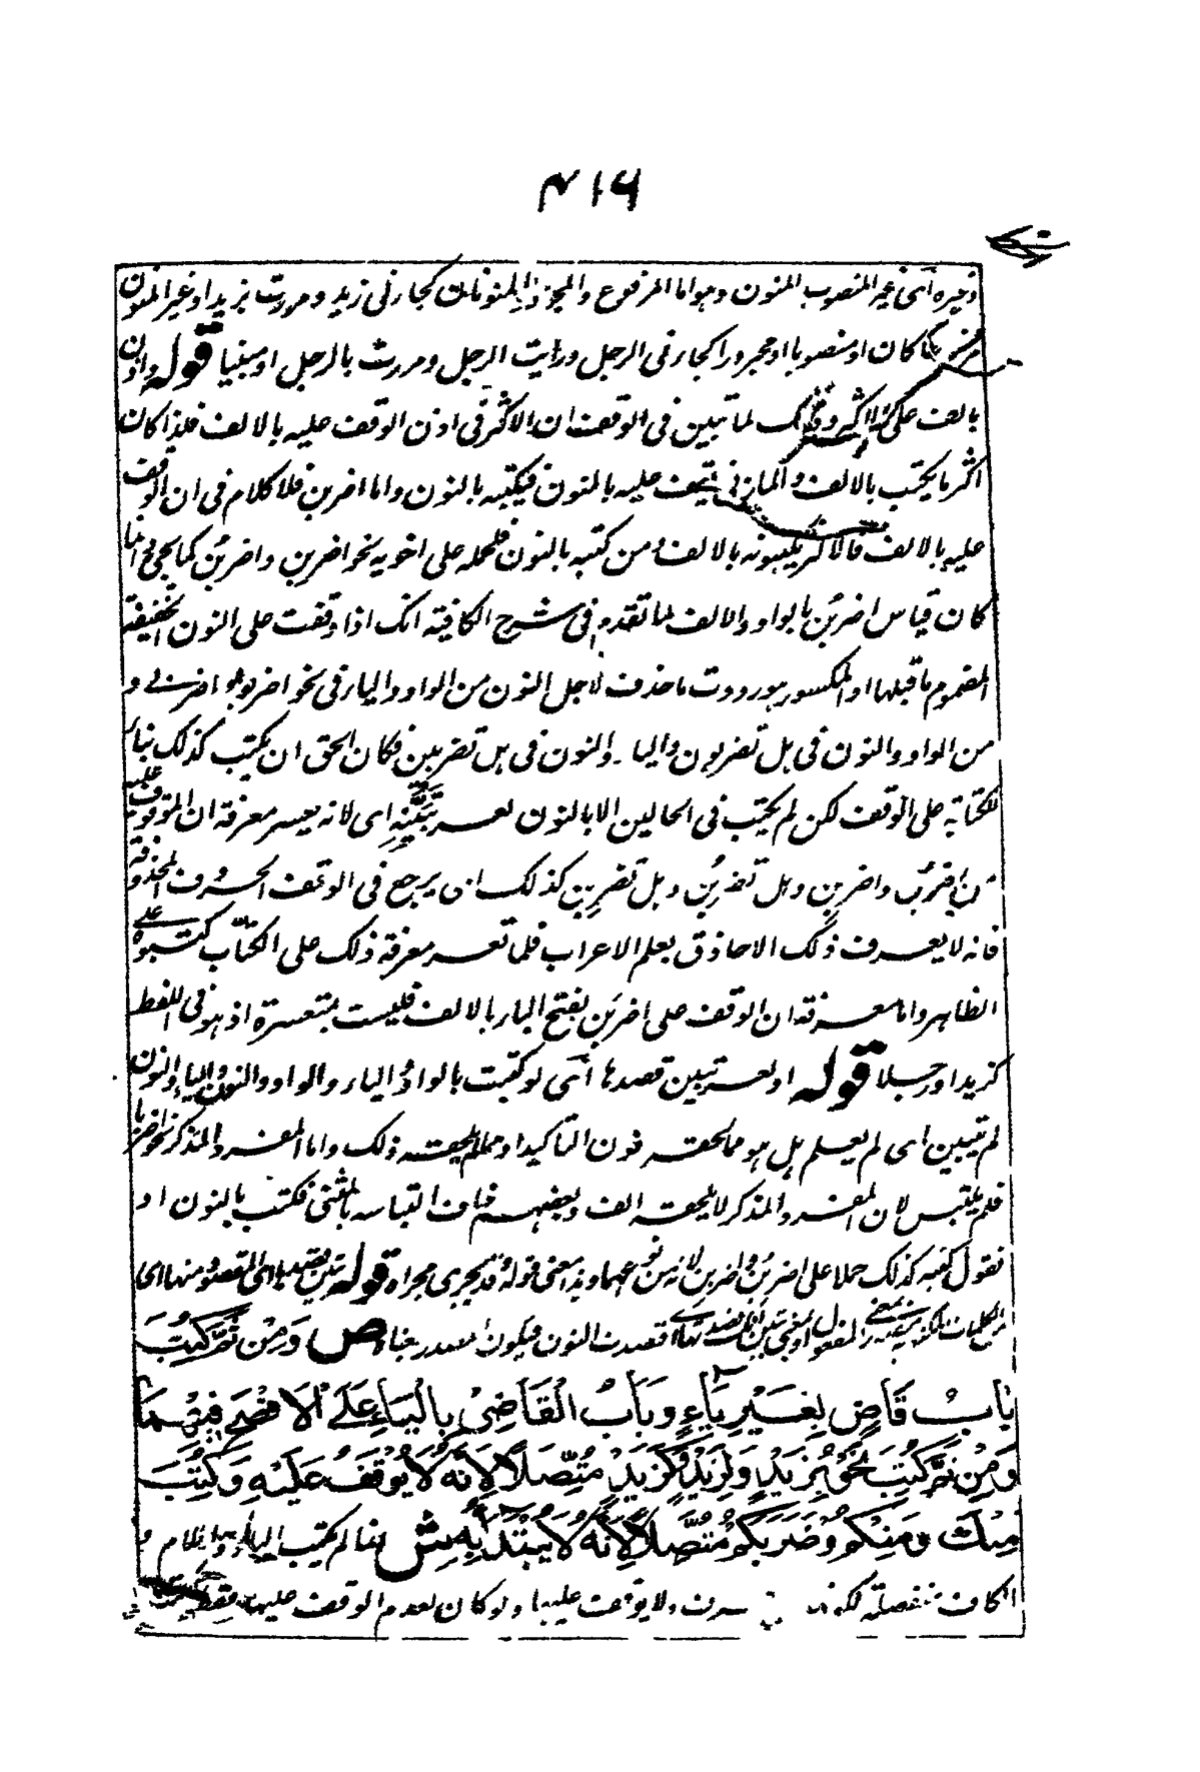 ٤١٦
وغيره أى غير المنصوب المنون وهو اما المرفوع والمجرور المنونان كجارنى زيد ومررت بزيد او غير المنون
كان او منصوبا او مجرورا كجارنى الرجل ورايت الرجل ومررت بالرجل او مبنيا قوله واذن
بالف على الاكثر لما تبين فى الوقف ان الاكثر فى اذن الوقف عليه بالالف فلذا كان
اكثر ما يكتب بالالف والمازنى يقف عليه بالنون فيكتبه بالنون واما اضربن فلا كلام فى ان الوقف
عليه بالالف فالاكثر يكتبونه بالالف ومن كتبه بالنون فلحمله على اخويه نحو اضربن واضربن كما يجئ انما
كان قياس اضربن بالواو والالف لما تقدم فى شرح الكافية انك اذا وقفت على النون الخفيفة
المضموم ما قبلها او المكسور هو رددت ما حذف لاجل النون من الواو والياء فى نحو اضربوا واضربى و
من الواو والنون فى هل تضربون والياء والنون فى هل تضربين فكان الحق ان يكتب كذلك بناء
للكتابة على الوقف لكن لم يكتب فى الحالين الا بالنون لعسر تبينه اى لانه يعسر معرفة ان الموقوف عليه
من اضربن واضربن وهل تضربن وهل تضربن كذلك اى يرجع فى الوقف الحروف المحذوفة
فانه لا يعرف ذلك الا حاذق بعلم الاعراب فلما تعسر معرفة ذلك على الكتاب كتبوه على
الظاهر واما معرفة ان الوقف على اضربن بفتح الباء بالالف فليست بمتعسرة اذ هو فى اللفظ
كزيدا ورجلا قوله او لعسر تبين قصدها أى لو كتبت بالواو والياء والواو والنون والياء والنون
لم تبين اى لم يعلم هل هو مما لحقه نون التاكيد او مما لم يلحقه ذلك واما المفرد المذكر نحو اضربا
فلم يلتبس لان المفرد المذكر لا يلحقه الف وبعضهم خاف التباسه بالمثنى فكتب بالنون او
نقول كتبه كذلك حملا على اضربن واضربن لانه من نوعهما وهذا معنى قوله وقد يجرى مجراه قوله تبين قصدها اى المقصود منها اى
من الكلمات المفعول او بمعنى تبين انك قصدت النون فيكون مصدر بمعناه ص وَمِنْ ثَمَّ كُتِبَ
بَابُ قَاضٍ بِغَيْرِ يَاءٍ وَبَابُ الْقَاضِىْ بِالْيَاءِ عَلَى الْاَفْصَحِ فِيْهِمَا
وَمِنْ ثَمَّ كُتِبَ نَحْوُ بِزَيْدٍ وَلِزَيْدٍ وَكَزَيْدٍ مُتَّصِلًا لِاَنَّهٗ لَا يُوْقَفُ عَلَيْهِ وَكُتِبَ
مِنْكَ وَمِنْكُمْ وَضَرَبَكُمْ مُتَّصِلًا لِاَنَّهٗ لَا يُبْتَدَأُ بِهٖ ش انما لم يكتب الباء واللام و
الكاف منفصلة ولا يوقف عليها ولو كان لعدم الوقف عليها فقط